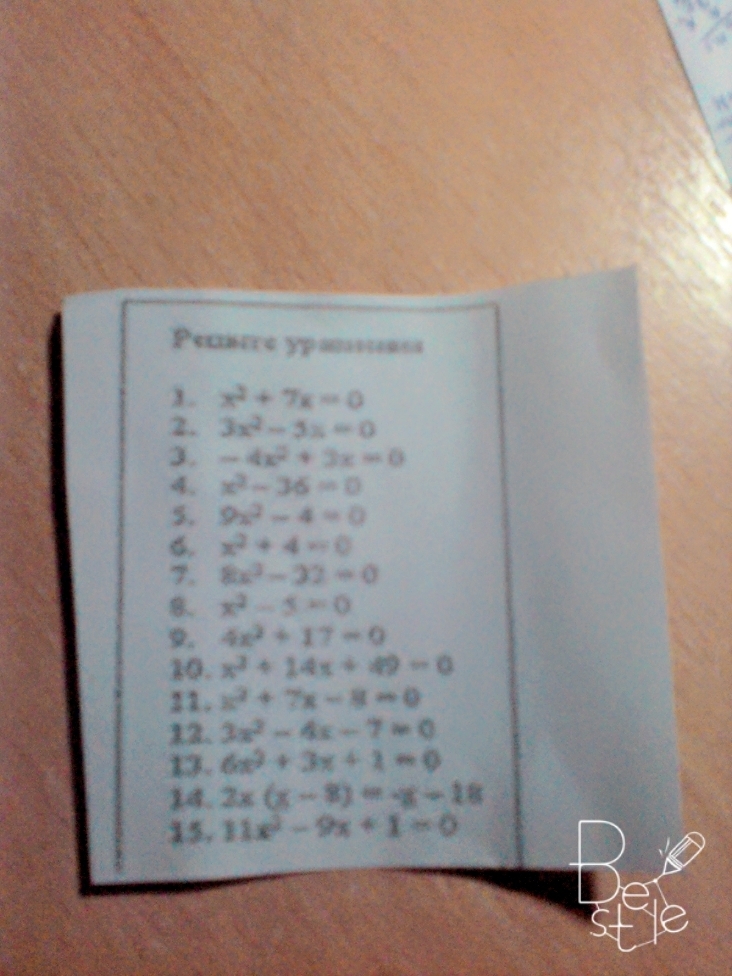 Решите уравнения
1. x² + 7x = 0
2. 3x² – 5x = 0
3. – 4x² + 3x = 0
4. x² – 36 = 0
5. 9x² – 4 = 0
6. x² + 4 = 0
7. 8x² – 32 = 0
8. x² – 5 = 0
9. 4x² + 17 = 0
10. x² + 14x + 49 = 0
11. x² + 7x – 8 = 0
12. 3x² – 4x – 7 = 0
13. 6x² + 3x + 1 = 0
14. 2x (x – 8) = -x – 18
15. 11x² – 9x + 1 = 0
Be
style